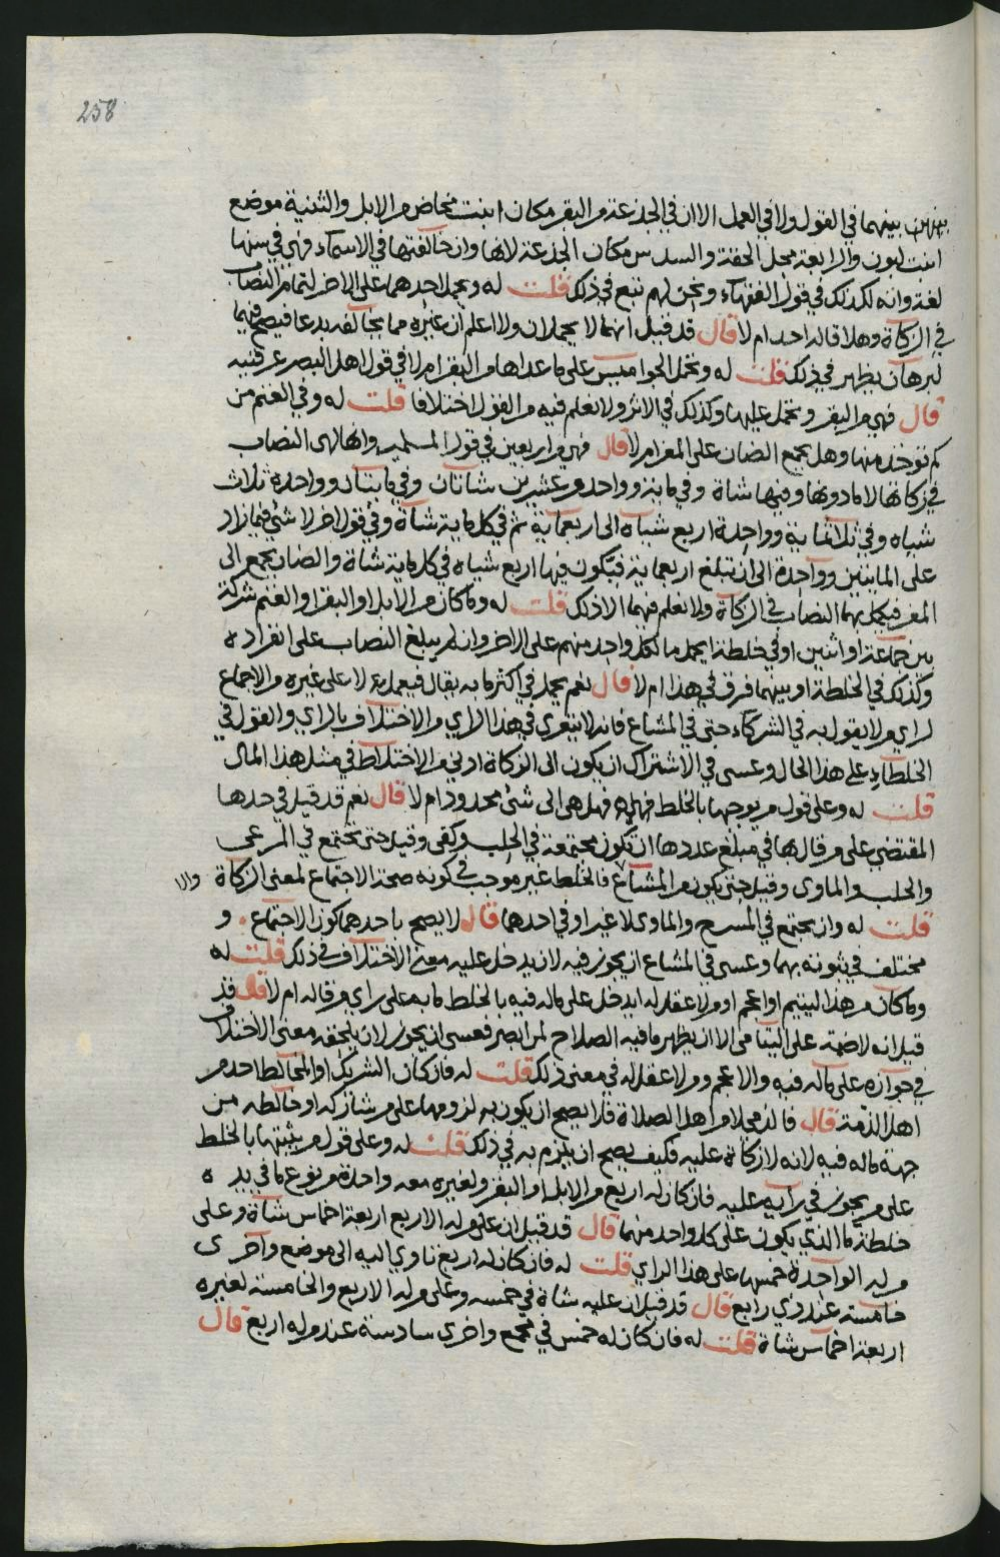 258
بينهن بينهما في القول ولا في العمل الا ان في الجذعة من البقر مكان ابنت مخاض من الابل والثنية موضع
ابنت لبون والرابعة محل الحقة والسدس مكان الجذعة لانها وان خالفتها في الاسماء فهي في سنها
لغة وانه لكذلك في قول الفقهاء ونحن لهم تبع في ذلك قلت له ويحمل احدهما على الاخر لتمام النصاب
في الزكاة وهل قاله احد ام لا قال قد قيل انهما لا يحملان ولا اعلم ان غيره مما يخالفه يدعا فيصح فيهما
لبرهان يظهر في ذلك قلت له وتحمل الجواميس على ما عداها من البقر ام لا في قول اهل البصر عرفنيه
قال فهي من البقر وتحمل عليها وكذلك في الاثر ولا نعلم فيه من القول اختلافا قلت له وفي الغنم من
كم تؤخذ منها وهل يجمع الضان على المعز ام لا قال فهي من اربعين في قول المسلمين وانها لهي النصاب
في زكاتها لا ما دونها وفيها شاة وفي مايه وواحد وعشرين شاتان وفي مايتان وواحدة ثلاث
شياه وفي ثلاثماية وواحدة اربع شياه الى اربعماية ثم في كل ماية شاة وفي قول اخر لا شئ فيما زاد
على الماىتين وواحدة الى ان تبلغ اربعماية فيكون فيها اربع شياه في كل ماية شاة والضان يجمع الى
المعز فيكمل بهما النصاب في الزكاة ولا نعلم فيهما الا ذلك قلت له وما كان من الابل او البقر او الغنم شركة
بين جماعة او اثنين او في خلطة ايحمل ما لكل واحد منهم على الاخر وان لم يبلغ النصاب على انفراده
وكذلك في الخلطة او بينهما فرق في هذا ام لا قال نعم يحمل في اكثر ما به يقال فيعمل عل لا على غيره من الاجماع
لراي من لا يقول به في الشركاء حتى في المشاع فانه لا يتعرى في هذا الراي من الاختلاف بالراي والقول في
الخلطاء على هذا الحال وعسى في الاشتراك ان يكون الى الزكاة ادنى من الاختلاط في مثل هذا المال
قلت له وعلى قول من يوجبها بالخلط فهل هي الى شئ محدود ام لا قال نعم قد قيل في حدها
المقتضي على من قال بها في مبلغ عددها ان تكون مجتمعة في الحلب وكفى وقيل حتى تجتمع في المرعى
والحلب والماوى وقيل حتى يكون من المشاع فالخلط غير موجب في كونه صحة الاجتماع لمعنى الزكاة والا
قلت له وان يجتمع في المسرح والماوى لا غير او في احدهما قال لا يصح باحدهما كون الاجتماع و
مختلف في ثبوته بهما وعسى في المشاع ان يجوز فيه لان يدخل عليه معنى الاختلاف في ذلك قلت له
وما كان من هذا ليتيم او اعجم او من لا عقل له ايدخل على ماله فيه بالخلط ما به على راي من قاله ام لا قال قد
قيل انه لا ضمة على اليتامى الا ان يظهر ما فيه الصلاح لمن ابصر فعسى ان يجوز لان يلحقه معنى الاختلاف
في جوازه على ماله فيه والاعجم ومن لا عقل له في معنى ذلك قلت له فان كان الشريك او المخالط احد من
اهل الذمة قال فالذمي لا من اهل الصلاة فلا يصح ان يكون به لزومها على من شاركه او خالطه من
جهة ماله فيه لانه لا زكاة عليه فكيف يصح ان يلزم به في ذلك قلت له وعلى قول من يثبتها بالخلط
على من يجوز في رايه عليه فان كان له اربع من الابل او البقر ولغيره معه واحدة من نوع ما في يده
خلطة ما الذي يكون على كل واحد منهما قال قد قيل ان على من له الاربع اربعة اخماس شاة وعلى
من له الواحدة خمسها على هذا الراي قلت له فان كان له اربع تاوي اليه الى موضع واخرى
خامسة عند ذي رابع قال قد قيل ان عليه شاة في خمسه وعلى من له الاربع والخامسة لغيره
اربعة اخماس شاة قلت له فان كان له خمس في مجمع واخرى سادسة عند من له اربع قال